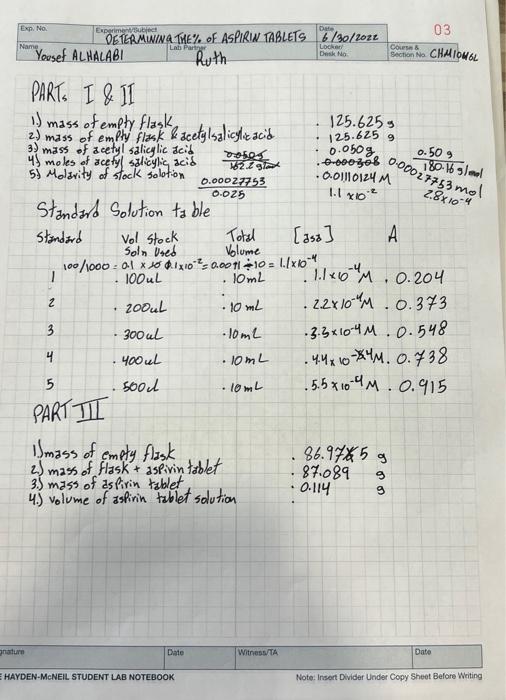 Exp. No. Experiment/Subject Date 03
DETERMINING THE % OF ASPIRIN TABLETS 6/30/2022
Name Lab Partner Locker/ Desk No. Course & Section No. CHM1046L
Yousef ALHALABI Ruth
PARTs I & II
1) mass of empty flask . 125.625 g
2) mass of empty flask & acetylsalicylic acid . 125.625 g
3) mass of acetyl salicylic acid . 0.050g 0.50 g
4) moles of acetyl salicylic acid 0.00027753 mol 180.16 g/mol
5) Molarity of stock solotion 0.00027753 . 0.01110124 M 2.8x10-4
0.025 1.1 x10-2
Standard Solution table
Standard Vol Stock Total [asa] A
Soln Used Volume
100/1000 = 0.1 x 1.1x10-2 = 0.0011 ÷ 10 = 1.1x10-4
1 . 100uL . 10mL . 1.1x10-4 M . 0.204
2 . 200uL . 10 mL . 2.2x10-4 M . 0.373
3 . 300uL . 10mL . 3.3x10-4 M . 0.548
4 . 400uL . 10mL . 4.4x10-4 M . 0.738
5 . 500uL . 10mL . 5.5x10-4 M . 0.915
PART III
1) mass of empty flask . 86.975 g
2) mass of flask + aspirin tablet . 87.089 g
3) mass of aspirin tablet . 0.114 g
4.) volume of aspirin tablet solution .
gnature Date Witness/TA Date
HAYDEN-McNEIL STUDENT LAB NOTEBOOK Note: Insert Divider Under Copy Sheet Before Writing